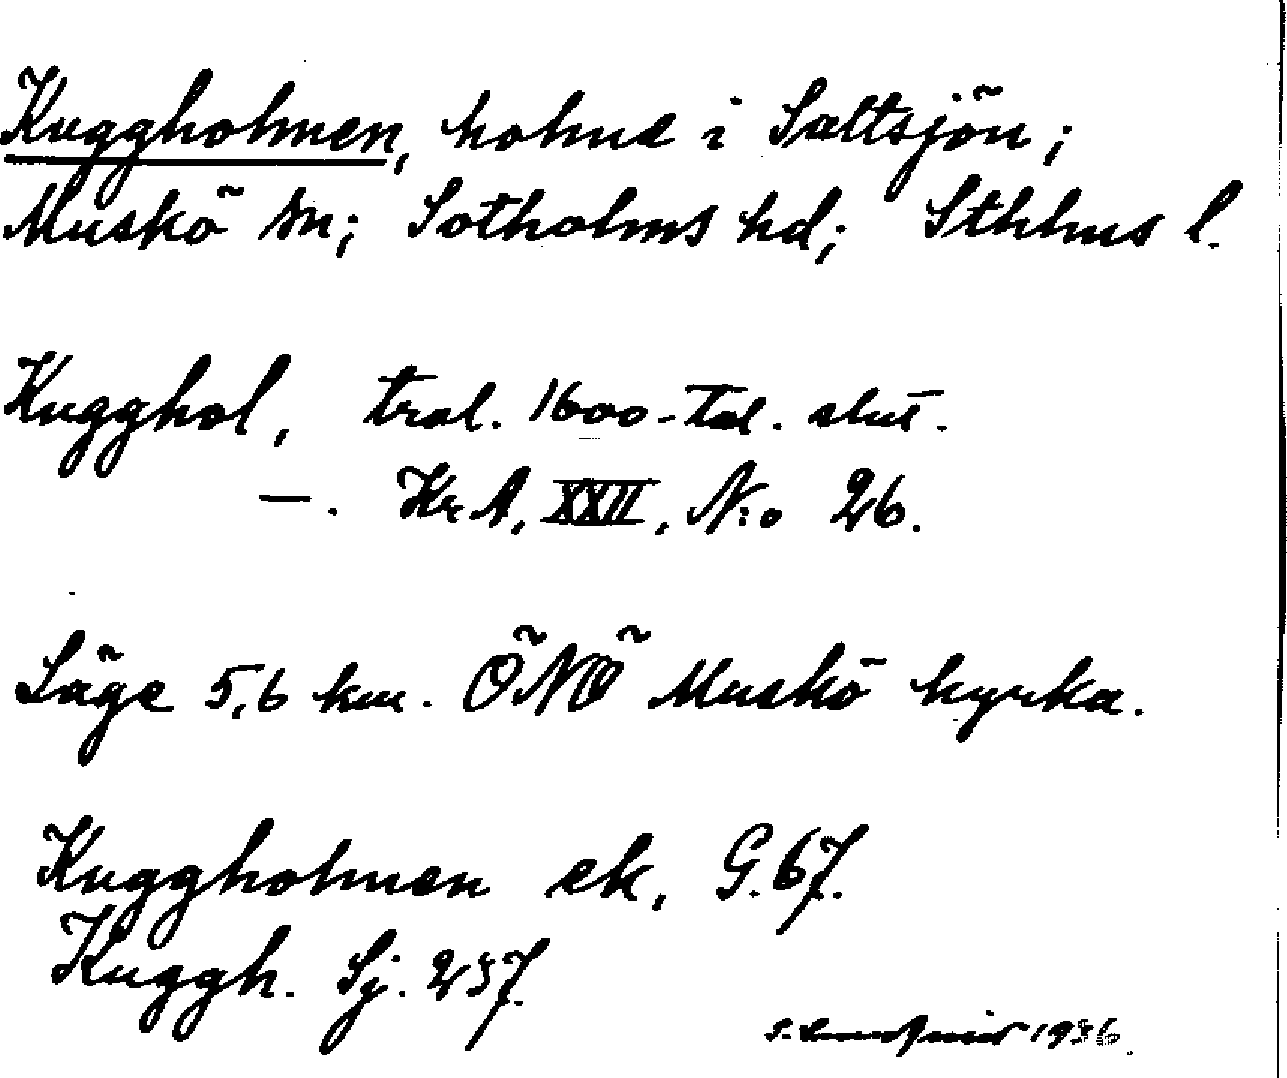 Kuggholmen, holme i Saltsjön;
Muskö sn; Sotholms hd; Sthlms l.
Kugghol, trol. 1600-tal. slut.
—. Kr.A, XXII, N:o 26.
Läge 5,6 km. ÖNÖ Muskö kyrka.
Kuggholmen ek, G. 67.
Kuggh. Sj. 237.
S. 1936.